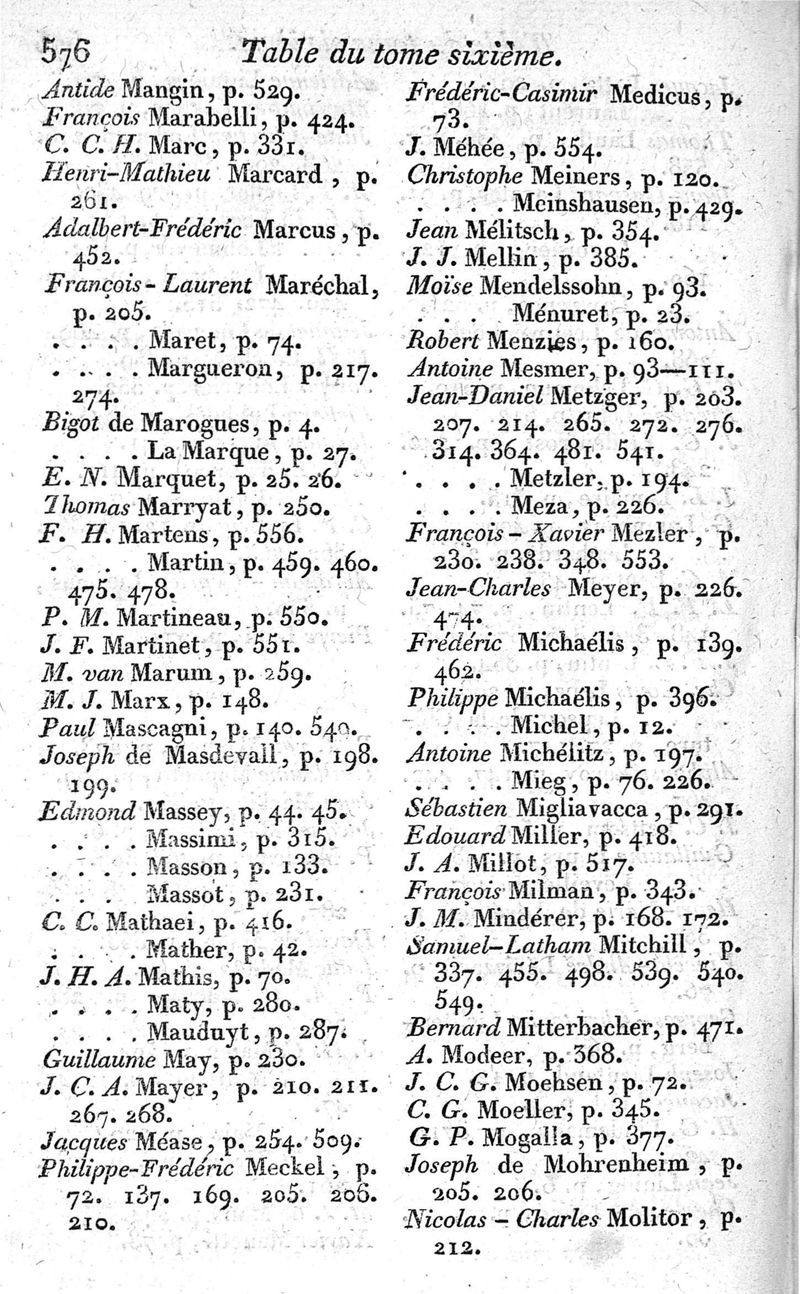 576 Table du tome sixième.
Antide Mangin, p. 529.
François Marabelli, p. 424.
C. C. H. Marc, p. 331.
Henri-Mathieu Marcard, p.
261.
Adalbert-Frédéric Marcus, p.
452.
François-Laurent Maréchal,
p. 205.
. . . . Maret, p. 74.
. . . . Margueron, p. 217.
274.
Bigot de Marogues, p. 4.
. . . . La Marque, p. 27.
E. N. Marquet, p. 25. 26.
Thomas Marryat, p. 250.
F. H. Martens, p. 556.
. . . . Martin, p. 459. 460.
475. 478.
P. M. Martineau, p. 550.
J. F. Martinet, p. 551.
M. van Marum, p. 259.
M. J. Marx, p. 148.
Paul Mascagni, p. 140. 540.
Joseph de Masdevall, p. 198.
199.
Edmond Massey, p. 44. 45.
. . . . Massimi, p. 315.
. . . . Masson, p. 133.
. . . . Massot, p. 231.
C. C. Mathaei, p. 416.
. . . . Mather, p. 42.
J. H. A. Mathis, p. 70.
. . . . Maty, p. 280.
. . . . Mauduyt, p. 287.
Guillaume May, p. 230.
J. C. A. Mayer, p. 210. 211.
267. 268.
Jacques Méase, p. 254. 509.
Philippe-Frédéric Meckel, p.
72. 137. 169. 205. 206.
210.
Frédéric-Casimir Medicus, p.
73.
J. Méhée, p. 554.
Christophe Meiners, p. 120.
. . . . Meinshausen, p. 429.
Jean Mélitsch, p. 354.
J. J. Mellin, p. 385.
Moïse Mendelssohn, p. 93.
. . . . Ménuret, p. 23.
Robert Menzies, p. 160.
Antoine Mesmer, p. 93—111.
Jean-Daniel Metzger, p. 203.
207. 214. 265. 272. 276.
314. 364. 481. 541.
. . . . Metzler, p. 194.
. . . . Meza, p. 226.
François-Xavier Mezler, p.
230. 238. 348. 553.
Jean-Charles Meyer, p. 226.
474.
Frédéric Michaélis, p. 139.
462.
Philippe Michaélis, p. 396.
. . . . Michel, p. 12.
Antoine Michélitz, p. 197.
. . . . Mieg, p. 76. 226.
Sébastien Migliavacca, p. 291.
Edouard Miller, p. 418.
J. A. Millot, p. 517.
François Milman, p. 343.
J. M. Mindérer, p. 168. 172.
Samuel-Latham Mitchill, p.
337. 455. 498. 539. 540.
549.
Bernard Mitterbacher, p. 471.
A. Modeer, p. 368.
J. C. G. Moehsen, p. 72.
C. G. Moeller, p. 345.
G. P. Mogalla, p. 377.
Joseph de Mohrenheim, p.
205. 206.
Nicolas-Charles Molitor, p.
212.